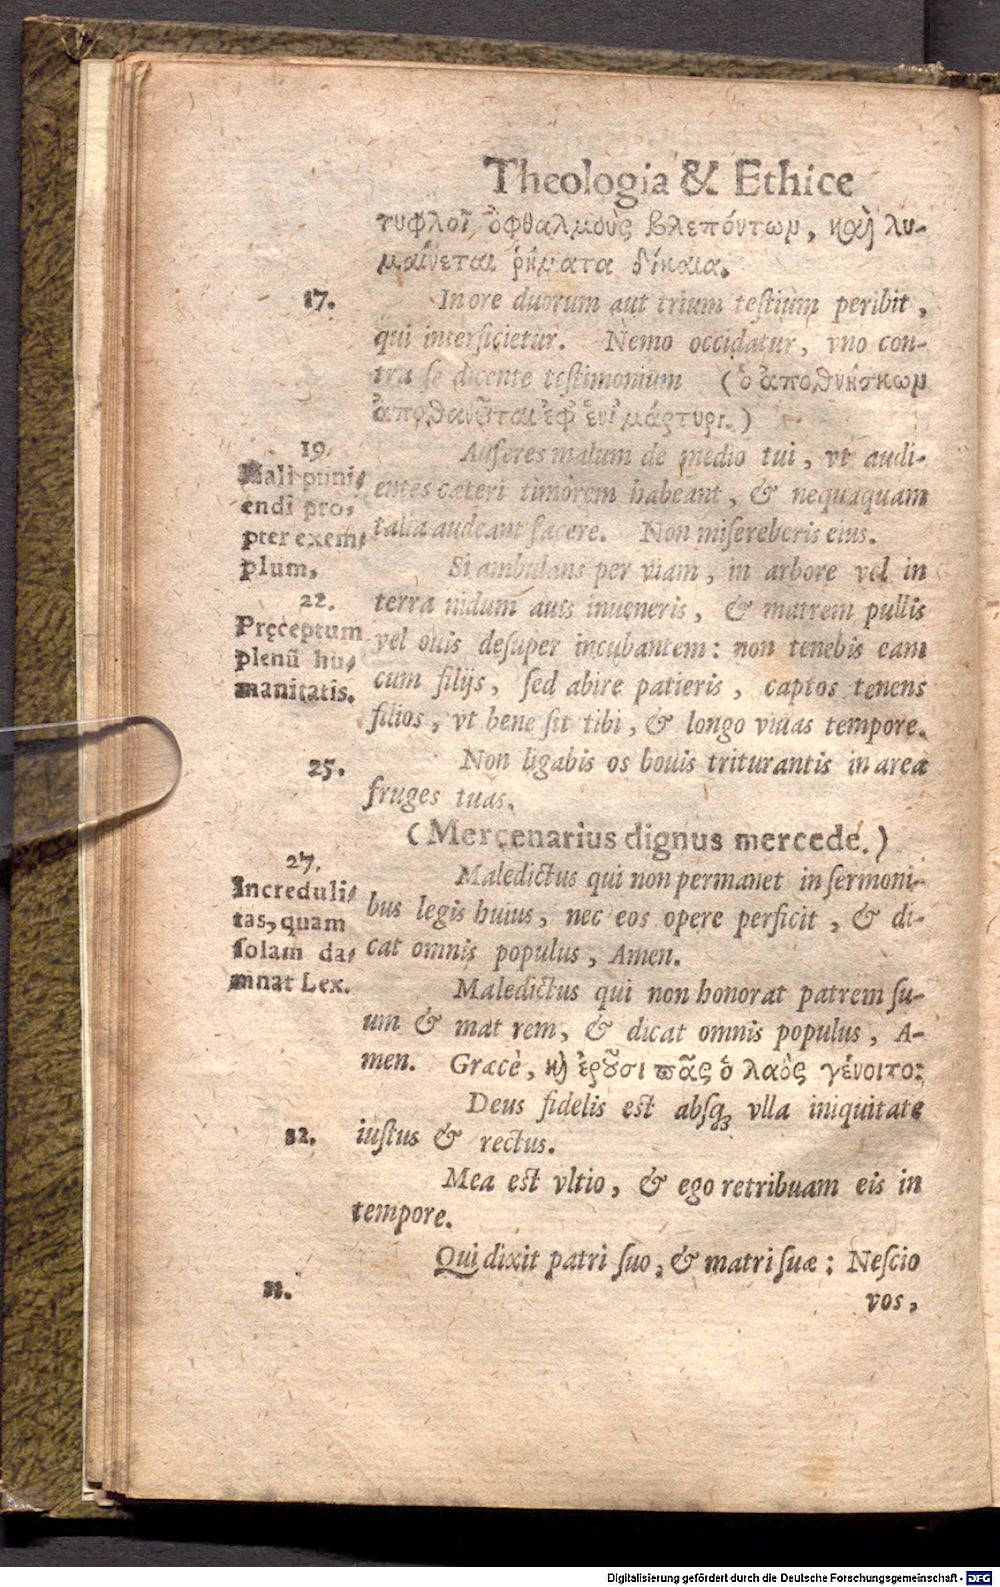 Theologia & Ethice
τυφλοῖ ὀφθαλμοὺς βλεπόντων, καὶ λυ-
μαίνεται ῥήματα δίκαια.
17.
In ore duorum aut trium teſtium peribit,
qui interficietur. Nemo occidatur, vno con-
tra ſe dicente teſtimonium (ὁ ἀποθνήσκων
ἀποθανεῖται ἐφ' ἑνὶ μάρτυρι.)
19.
Mali puni-
endi pro-
pter exem-
plum.
Auferes malum de medio tui, vt audi-
entes cæteri timorem habeant, & nequaquam
talia audeant facere. Non miſereberis eius.
22.
Pręceptum
plenũ hu-
manitatis.
Si ambulans per viam, in arbore vel in
terra nidum auis inueneris, & matrem pullis
vel ouis deſuper incubantem: non tenebis eam
cum filijs, ſed abire patieris, captos tenens
filios, vt bene ſit tibi, & longo viuas tempore.
25.
Non ligabis os bouis triturantis in area
fruges tuas.
(Mercenarius dignus mercede.)
27.
Increduli-
tas, quam
ſolam da-
mnat Lex.
Maledictus qui non permanet in ſermoni-
bus legis huius, nec eos opere perficit, & di-
cat omnis populus, Amen.
Maledictus qui non honorat patrem ſu-
um & mat rem, & dicat omnis populus, A-
men. Græcè, καὶ ἐροῦσι πᾶς ὁ λαὸς γένοιτο:
32.
Deus fidelis est abſq; vlla iniquitate
iuſtus & rectus.
Mea est vltio, & ego retribuam eis in
tempore.
Qui dixit patri ſuo, & matri ſuæ: Neſcio
vos,
Digitalisierung gefördert durch die Deutsche Forschungsgemeinschaft - DFG